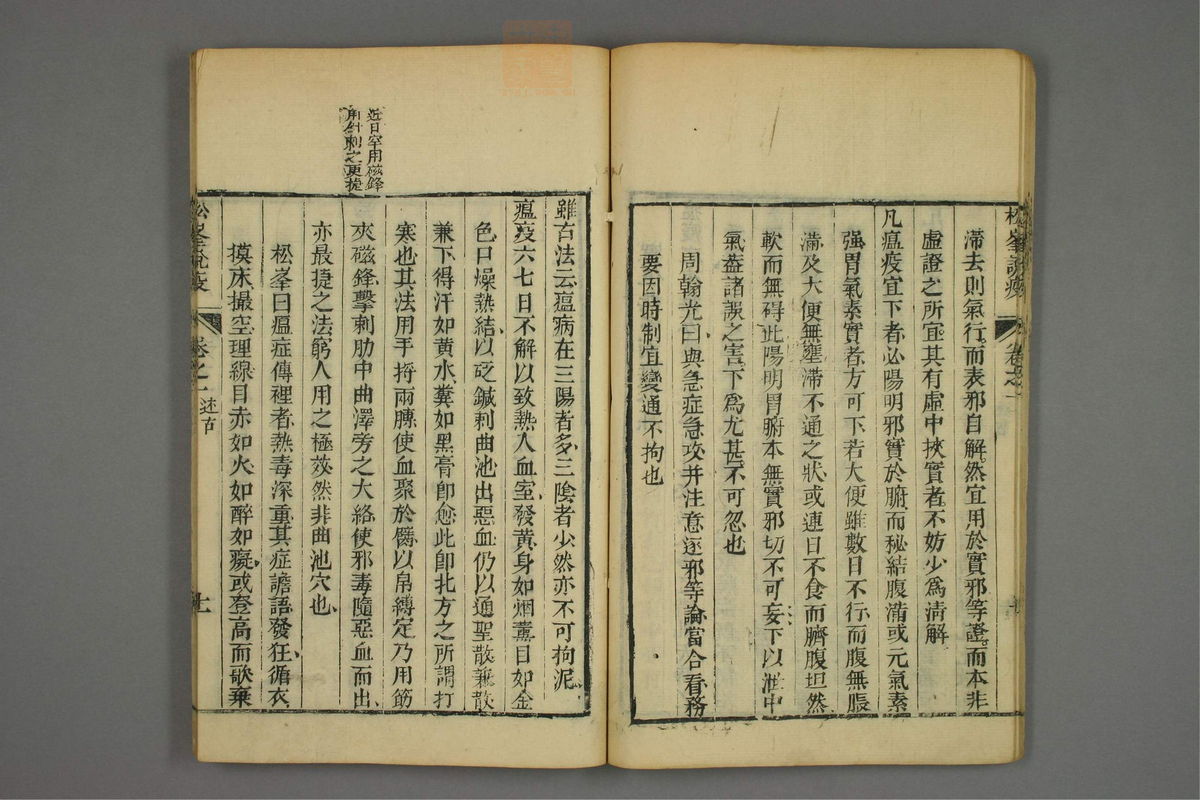 松峯說疫
卷之一
滯去則氣行而表邪自解然宜用於實邪等證而本非
虛證之所宜其有虛中挾實者不妨少爲清解
凡瘟疫宜下者必陽明邪實於腑而秘結腹滿或元氣素
强胃氣素實者方可下若大便雖數日不行而腹無脹
滿及大便無壅滯不通之狀或連日不食而臍腹坦然
軟而無碍此陽明胃腑本無實邪切不可妄下以泄中
氣蓋諸誤之害下爲尤甚不可忽也
周翰光曰與急症急攻并注意逐邪等論當合看務
要因時制宜變通不拘也
近日罕用磁鋒
用針刺之更捷
雖古法云瘟病在三陽者多三陰者少然亦不可拘泥
瘟疫六七日不解以致熱入血室發黃身如烟熏目如金
色口燥熱結以砭鍼刺曲池出惡血仍以通聖散兼散
兼下得汗如黃水糞如黑膏卽愈此卽北方之所謂打
寒也其法用手捋兩膊使血聚於臂以帛縛定乃用筯
夾磁鋒擊刺肋中曲澤旁之大絡使邪毒隨惡血而出
亦最捷之法窮人用之極效然非曲池穴也
松峯曰瘟症傳裡者熱毒深重其症譫語發狂循衣
摸床撮空理線目赤如火如醉如癡或登高而歌棄
松峯說疫
卷之一
述古
十一